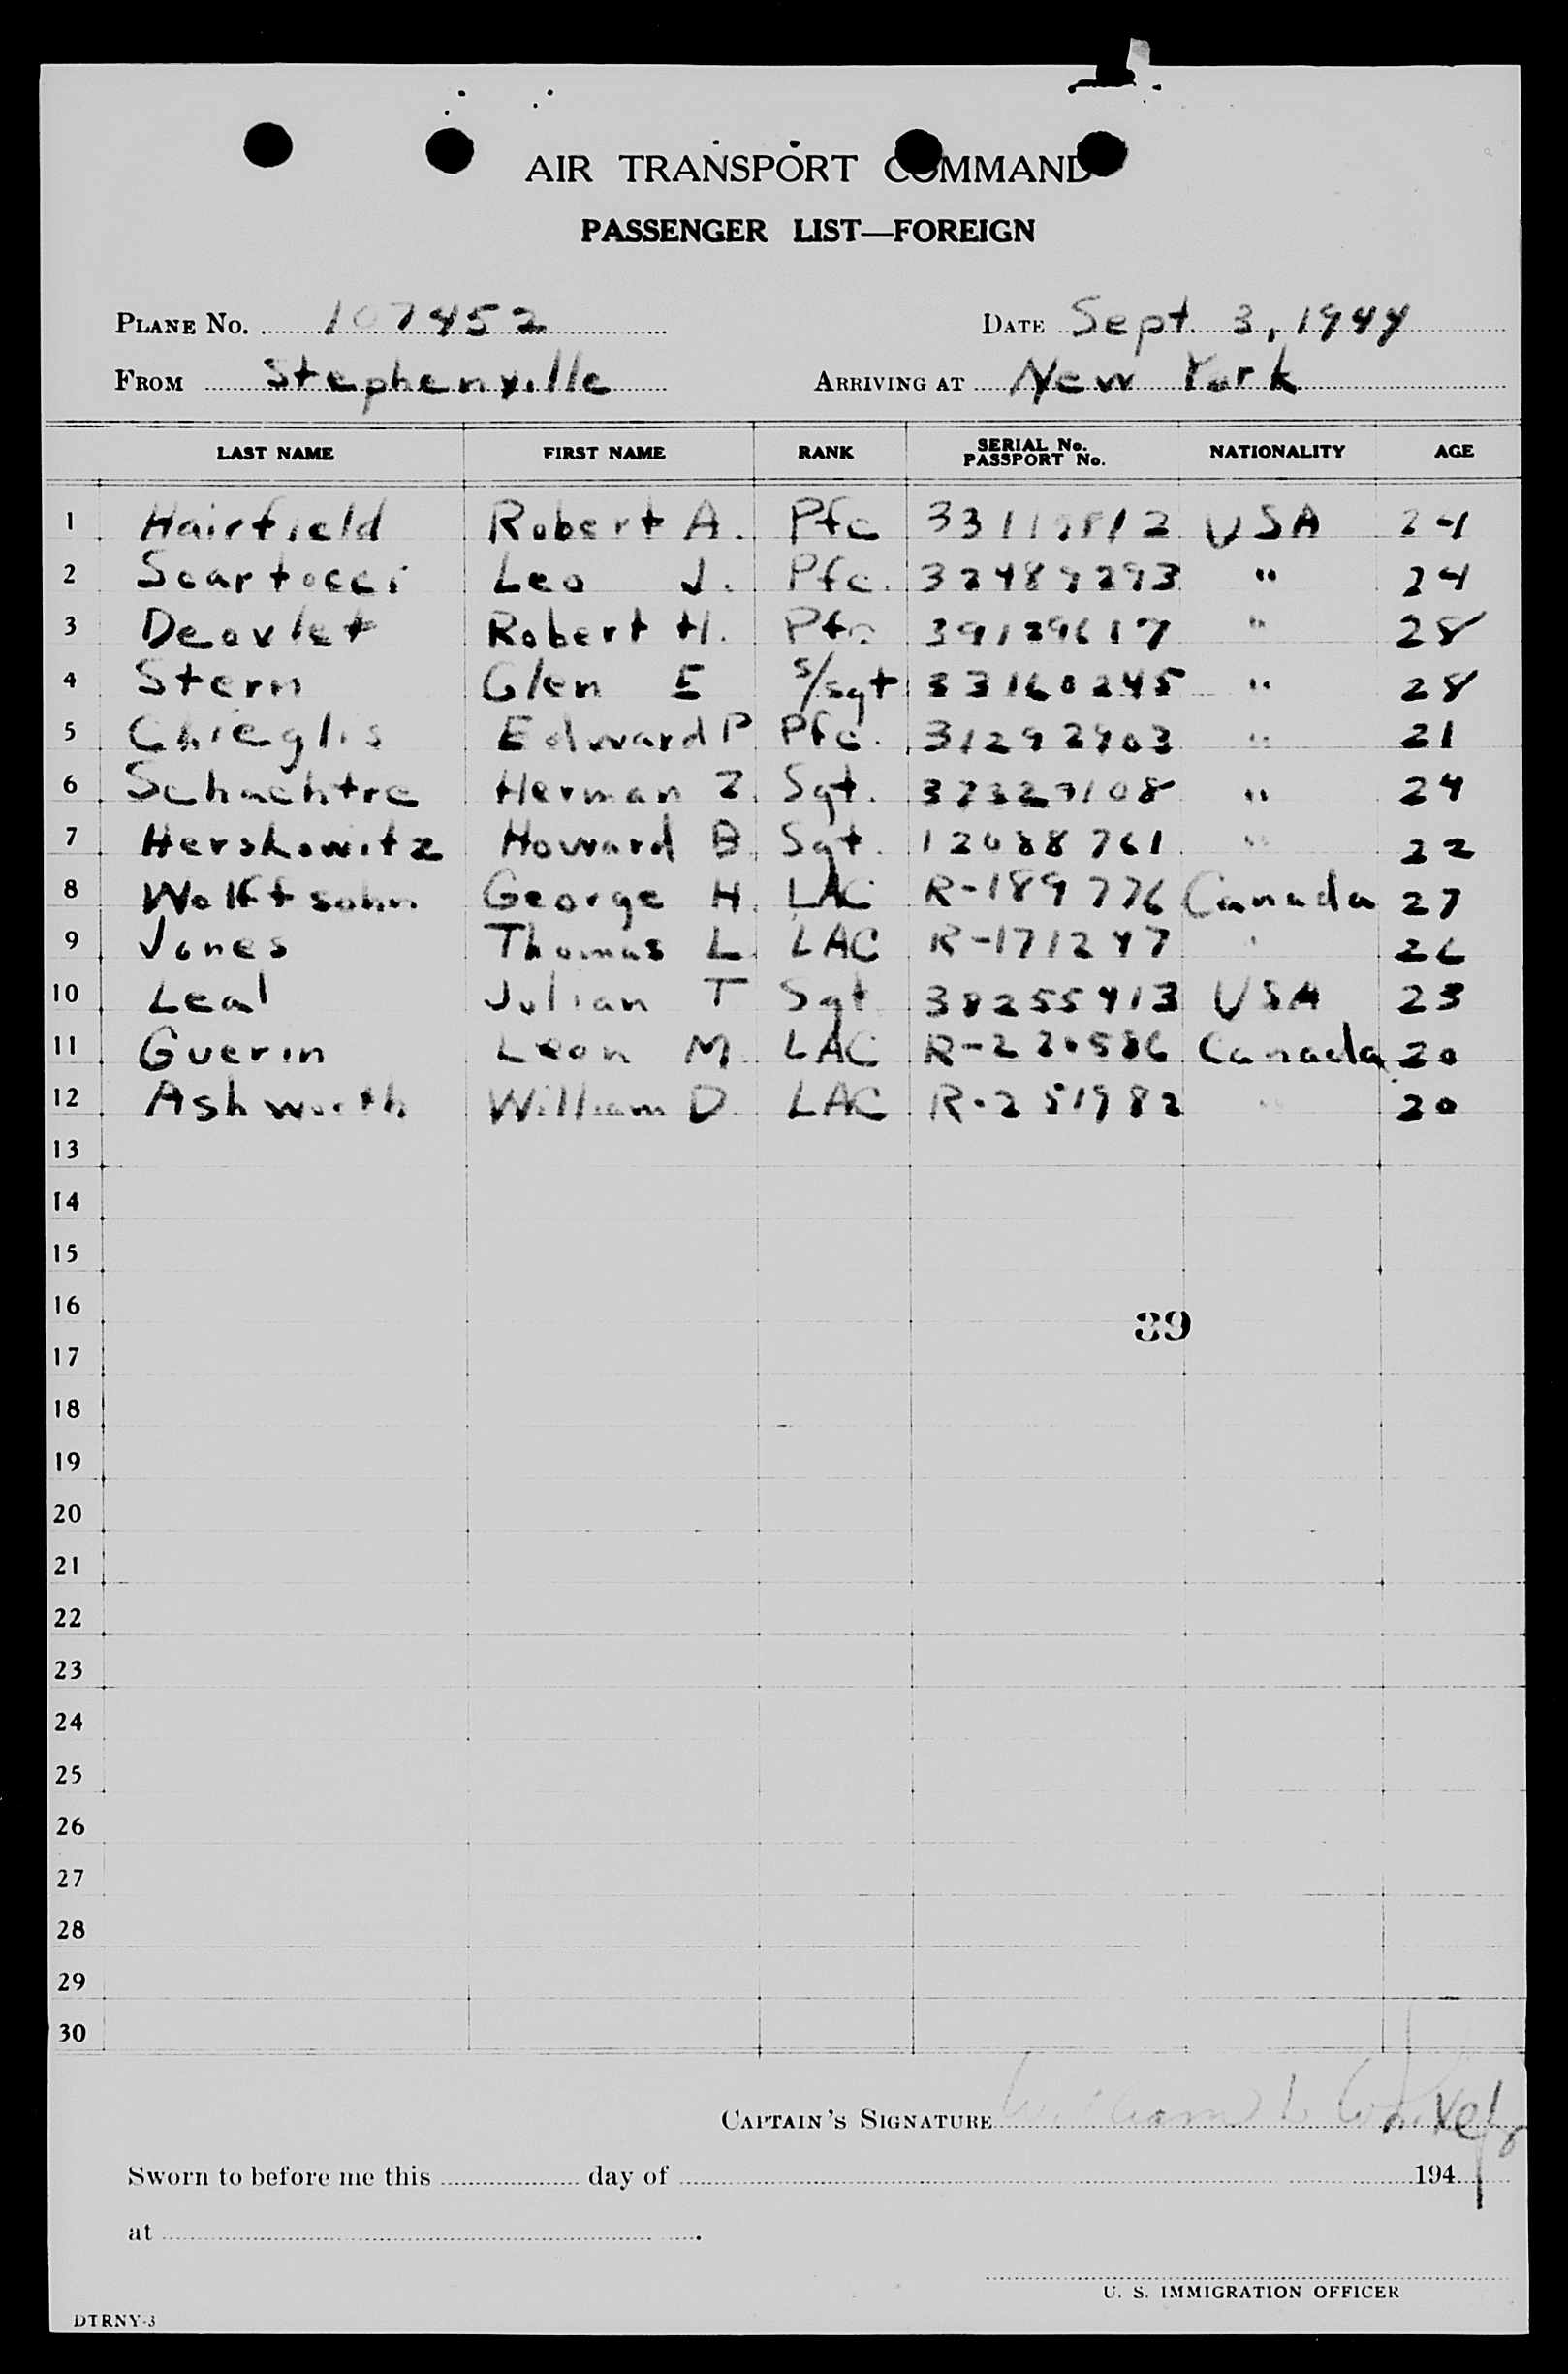 AIR TRANSPORT COMMAND
PASSENGER LIST—FOREIGN
PLANE No. 107452 DATE Sept. 3, 1944
FROM Stephenville ARRIVING AT New York
LAST NAME FIRST NAME RANK SERIAL No. PASSPORT No. NATIONALITY AGE
1 Hairfield Robert A. Pfc 33119812 USA 24
2 Scartocci Leo J. Pfc. 32489293 " 24
3 Deovlet Robert H. Pfc 39129617 " 28
4 Stern Glen E S/Sgt 33160245 " 28
5 Chieglis Edward P Pfc. 31292903 " 21
6 Herman Z. Sgt. 32327108 " 24
7 Hershowitz Howard B. Sgt. 12088761 " 22
8 Wolffsohn George H. LAC R-189776 Canada 27
9 Jones Thomas L. LAC R-171247 " 26
10 Leal Julian T Sgt 38255413 USA 23
11 Guerin Leon M LAC R-220586 Canada 20
12 Ashworth William D. LAC R-251982 " 20
13
14
15
16
39
17
18
19
20
21
22
23
24
25
26
27
28
29
30
CAPTAIN'S SIGNATURE William L
Sworn to before me this day of 194
at .
U. S. IMMIGRATION OFFICER
DTRNY-3